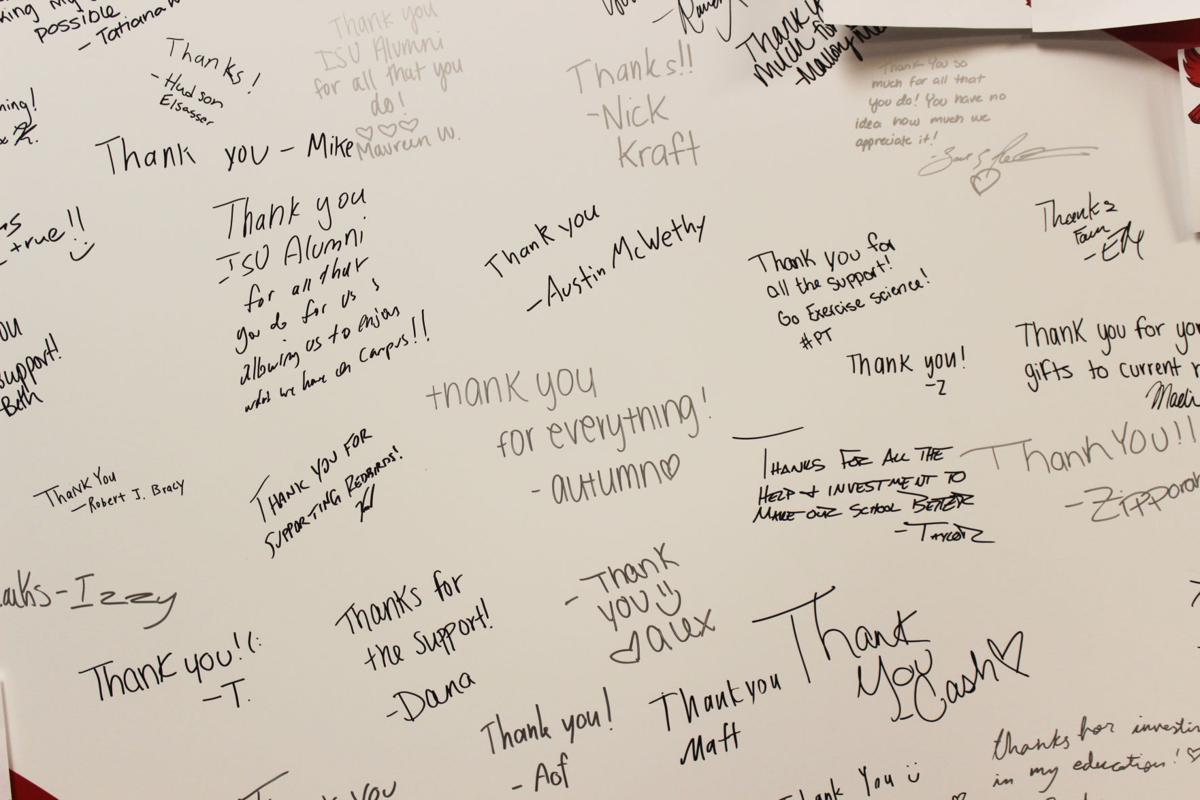 possible
- Tatiana
Thanks!
- Hudson
Elsasser
Thank you
ISU Alumni
for all that you
do!
♡♡♡
Maureen W.
Thank you - Mike
Thanks!!
- Nick
Kraft
Thank
much for
Mallory
Thank you so
much for all that
you do! You have no
idea how much we
appreciate it!
true!!
Thank you
ISU Alumni
for all that
you do for us &
allowing us to enjoy
what we have on Campus!!
Thank you
- Austin McWethy
Thank you for
all the support!
Go Exercise science!
#PT
Thanks
Thank you!
- Z
Thank you for
gifts to current
Madi
support!
Beth
thank you
for everything!
- autumn♡
Thank You
- Robert J. Bracy
THANK YOU FOR
SUPPORTING REDBIRDS!
THANKS FOR ALL THE
HELP & INVESTMENT TO
MAKE OUR SCHOOL BETTER
- TAYLOR
Thank YOU!!
- Zipporah
- Izzy
Thank you! (:
- T.
Thanks for
the support!
- Dana
- Thank
you
♡ alex
Thank
you
- Cash♡
Thank you!
- Aof
Thank you
Matt
thanks for
in my education! ♡
Thank You
you